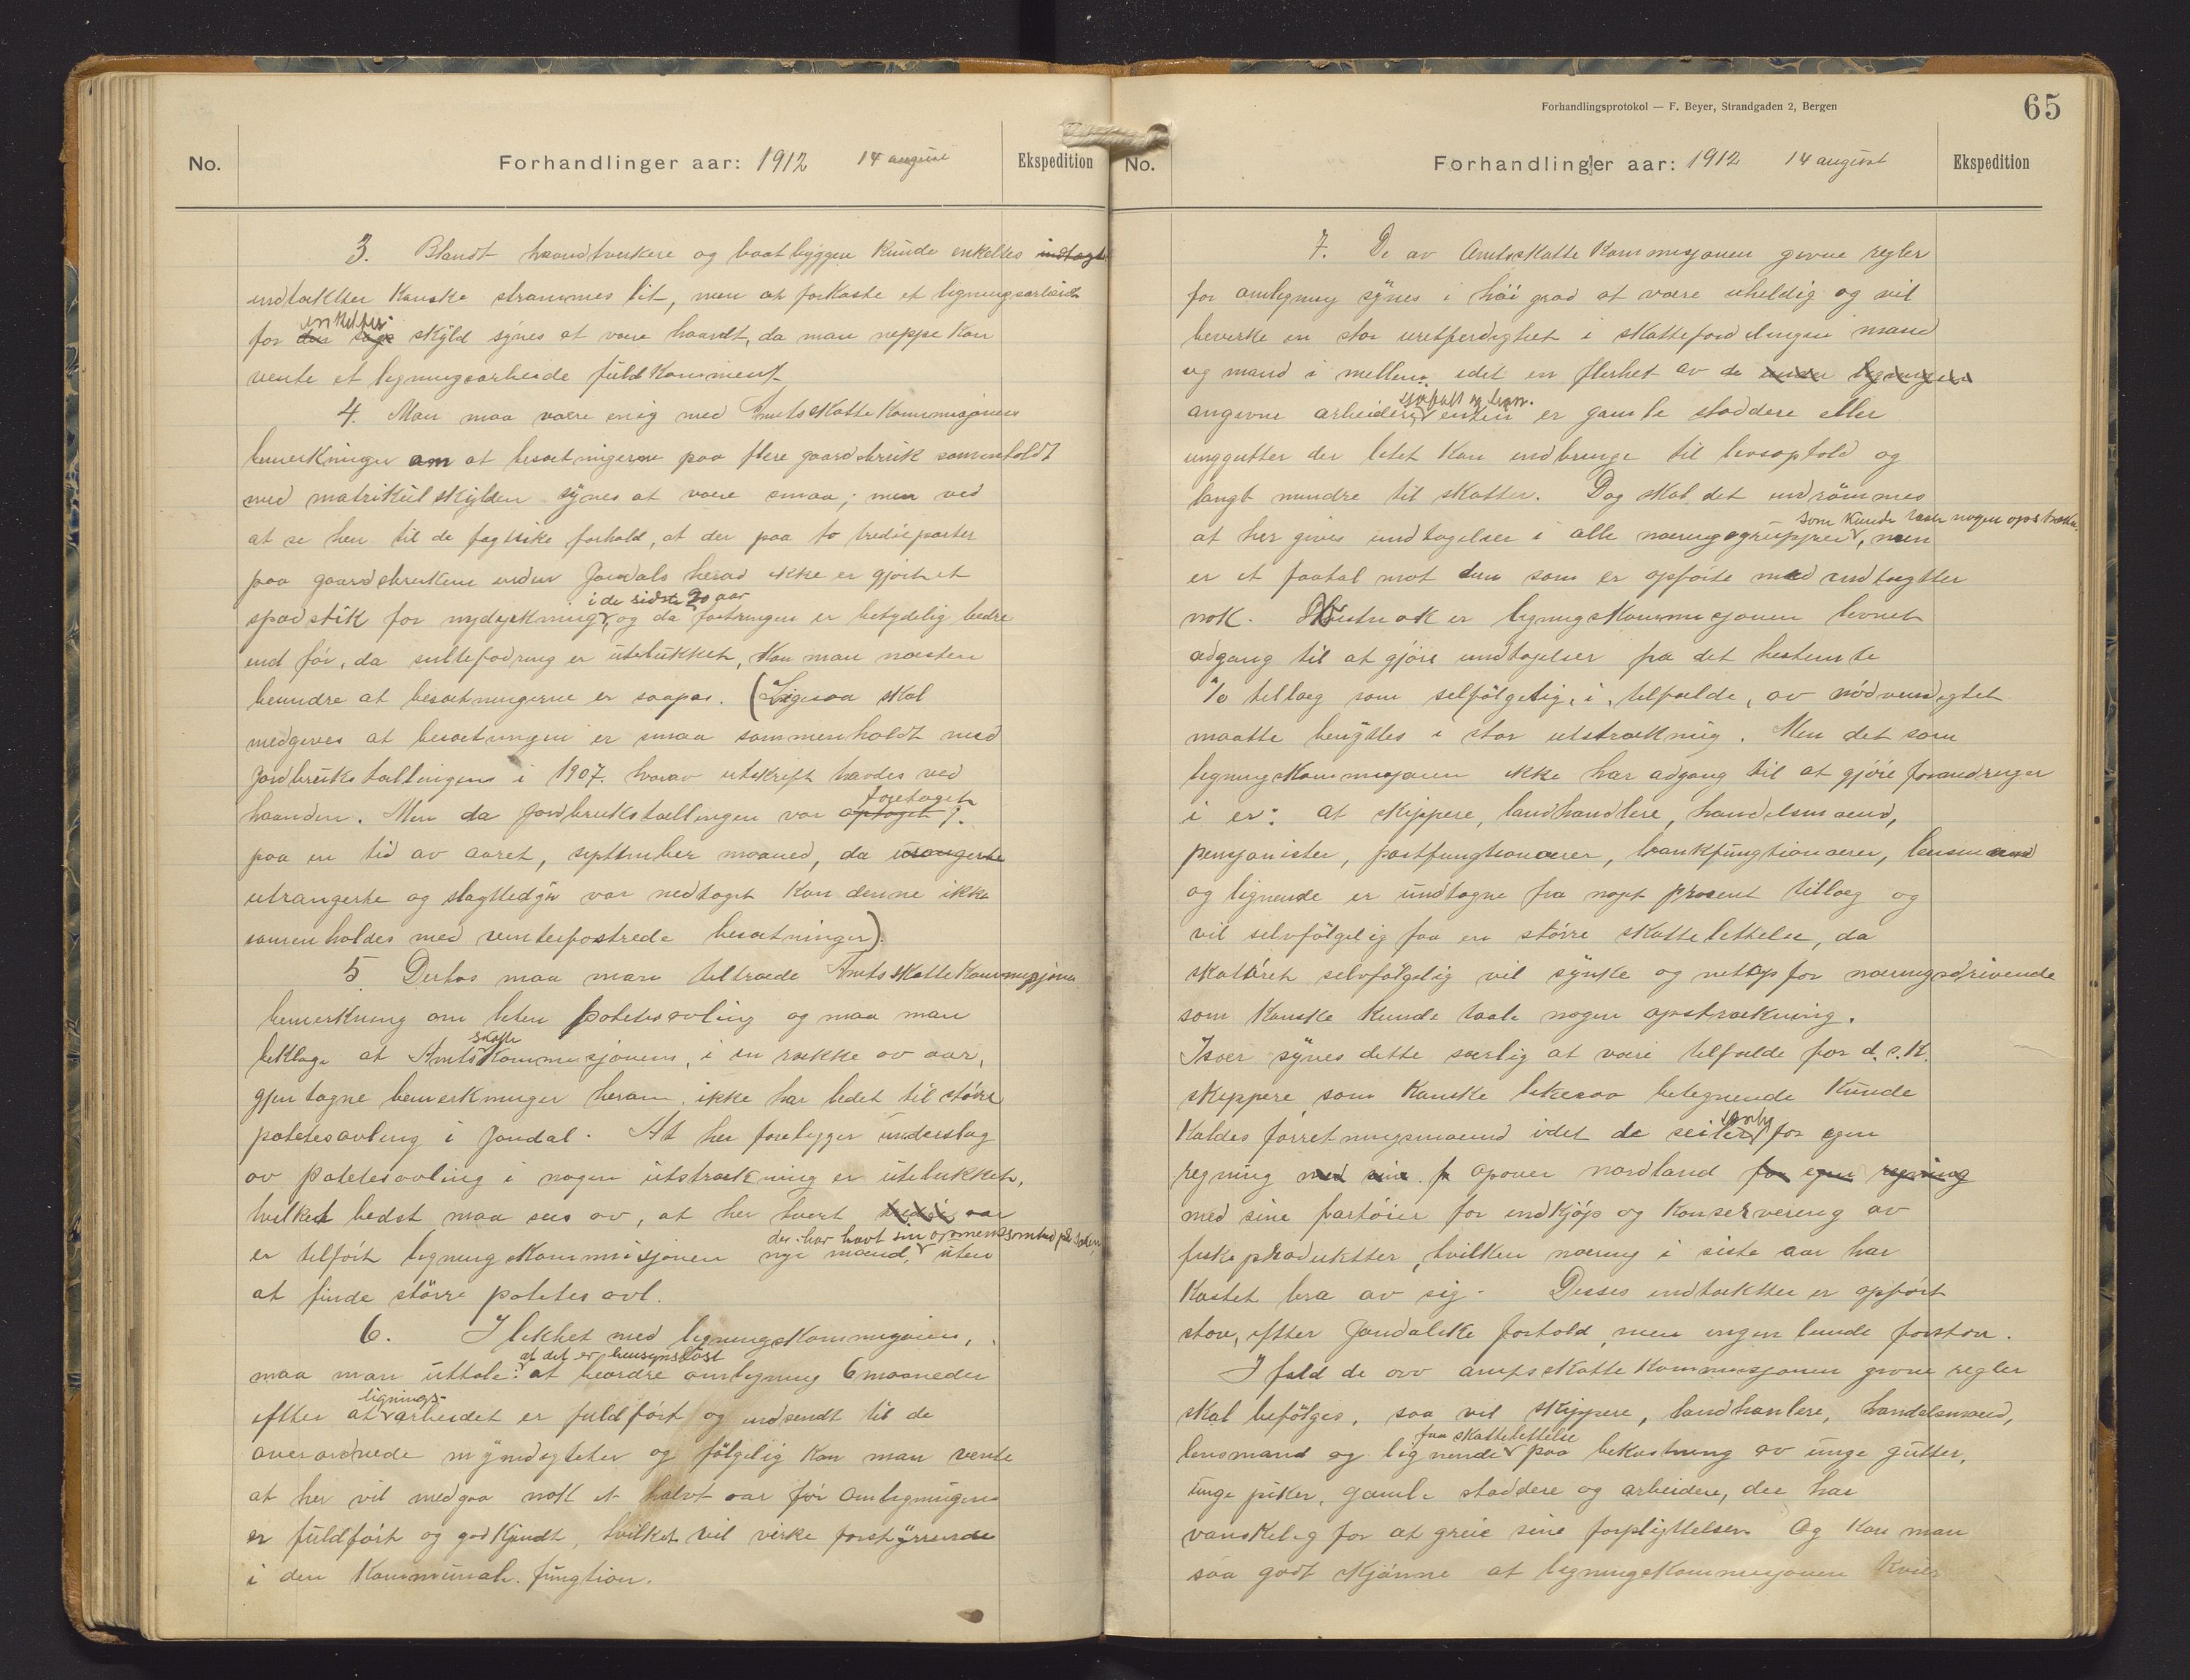 No. Forhandlinger aar: 1912 14 august Ekspedition
3. Blandt haandverkere og baatbyggere kunde enkeltes indtægt
indtækter kanske strammes lit, men at forkaste et ligningsarbeide
enkeltes
for skyld synes at være haardt, da man neppe kan
vente et ligningsarbeide fuldkomment.
4. Man maa være enig med Amtsskattekommisjonens
bemerkninger om at besætningerne paa flere gaardsbruk sammenholdt
med matrikulskylden synes at være smaa; men ved
at se hen til de fagtiske forhold, at der paa to trediеparter
paa gaardsbrukene inden Jondals herad ikke er gjort et
i de sidste 20 aar
spadstik for nydyrkning, og da fostringen er betydelig bedre
end før, da sultefodring er utelukket, kan man næsten
beundre at besætningerne er saapas. (Ligesaa skal
medgives at besætningen er smaa sammenholdt med
Jordbrukstællingens i 1907. hvorav utskrift havdes ved
foretaget
haanden. Men da Jordbrukstællingen var optaget
paa en tid av aaret, september maaned, da
utrangerte og slagtedyr var nedtaget kan denne ikke
sammenholdes med vinterfostrede besætninger).
5. Dertos maa man tiltræde Amtsskattekommisjonens
bemerkning om liten potetesavling og maa man
skatte
beklage at Amtskommisjonens, i en række av aar,
gjentagne bemerkninger herom, ikke har ledet til større
potetesavling i Jondal. At her foreligger underslag
av potetesavling i nogen utstrækning er utelukket,
hvilket bedst maa sees av, at her hvert aar
der har havt sin opmerksomhed paa saken
er tilført ligningskommisjonen nye mænd, uten
at finde større potetesavl.
6. I likhet med ligningskommisjonen,
at det er hensynsløst
maa man uttale: at beordre omligning 6 maaneder
lignings-
efter at arbeidet er fuldført og indsendt til de
overordnede myndigheter og følgelig kan man vente
at her vil medgaa nok et halvt aar før omligningen
er fuldført og godkjendt, hvilket vil virke forstyrrende
i den kommunale fungtion.
Forhandlingsprotokol — F. Beyer, Strandgaden 2, Bergen
65
No. Forhandlinger aar: 1912 14 august Ekspedition
7. De av Amtsskattekommisjonen givne regler
for omligning synes i høi grad at være uheldig og vil
bevirke en stor uretferdighet i skattefordelingen mand
og mand i mellem idet en flerhet av de ligningen
angivne arbeidere enten er gamle stoddere eller
unggutter der litet kan indbringe til livsophold og
langt mindre til skatter. Dog skal det indrømmes
som kunde taale nogen opstrækn.
at her gives undtagelser i alle næringsgrupper, men
er et faatal mot dem som er opførte med indtægtter
nok. Vistnok er ligningskommisjonen levnet
adgang til at gjøre undtagelser fra det bestemte
% tillæg som selfølgelig, i tilfælde, av nødvendighet
maatte benyttes i stor utstrækning. Men det som
ligningskommisjonen ikke har adgang til at gjøre forandringer
i er: at skippere, landhandlere, handelsmænd,
pensjonister, postfungtionærer, bankfungtionærer, lensmænd
og lignende er undtagne fra noget prosent tillæg og
vil selvfølgelig faa en større skattelettelse, da
skatøret selvfølgelig vil synke og netop for næringsdrivende
som kanske kunde taale nogen opstrækning.
Især synes dette særlig at være tilfælde for d. s. k.
skippere som kanske likesaa betegnende kunde
kaldes forretningsmænd idet de seiler for egen
regning opover nordland for egen regning
med sine fartøier for indkjøp og konservering av
fiskeprodukter, hvilken næring i siste aar har
kastet bra av sig. Disses indtækter er opført
store, efter Jondalske forhold, men ingen lunde forstore.
I fald de av amtsskattekommisjonen givne regler
skal befølges, saa vil skippere, landhanlere, handelsmænd,
faa skattelettelse
lensmand og lignende paa bekostning av unge gutter,
unge piker, gamle stoddere og arbeidere, der har
vanskelig for at greie sine forpligtelser. Og kan man
saa godt skjønne at ligningskommisjonen kvier